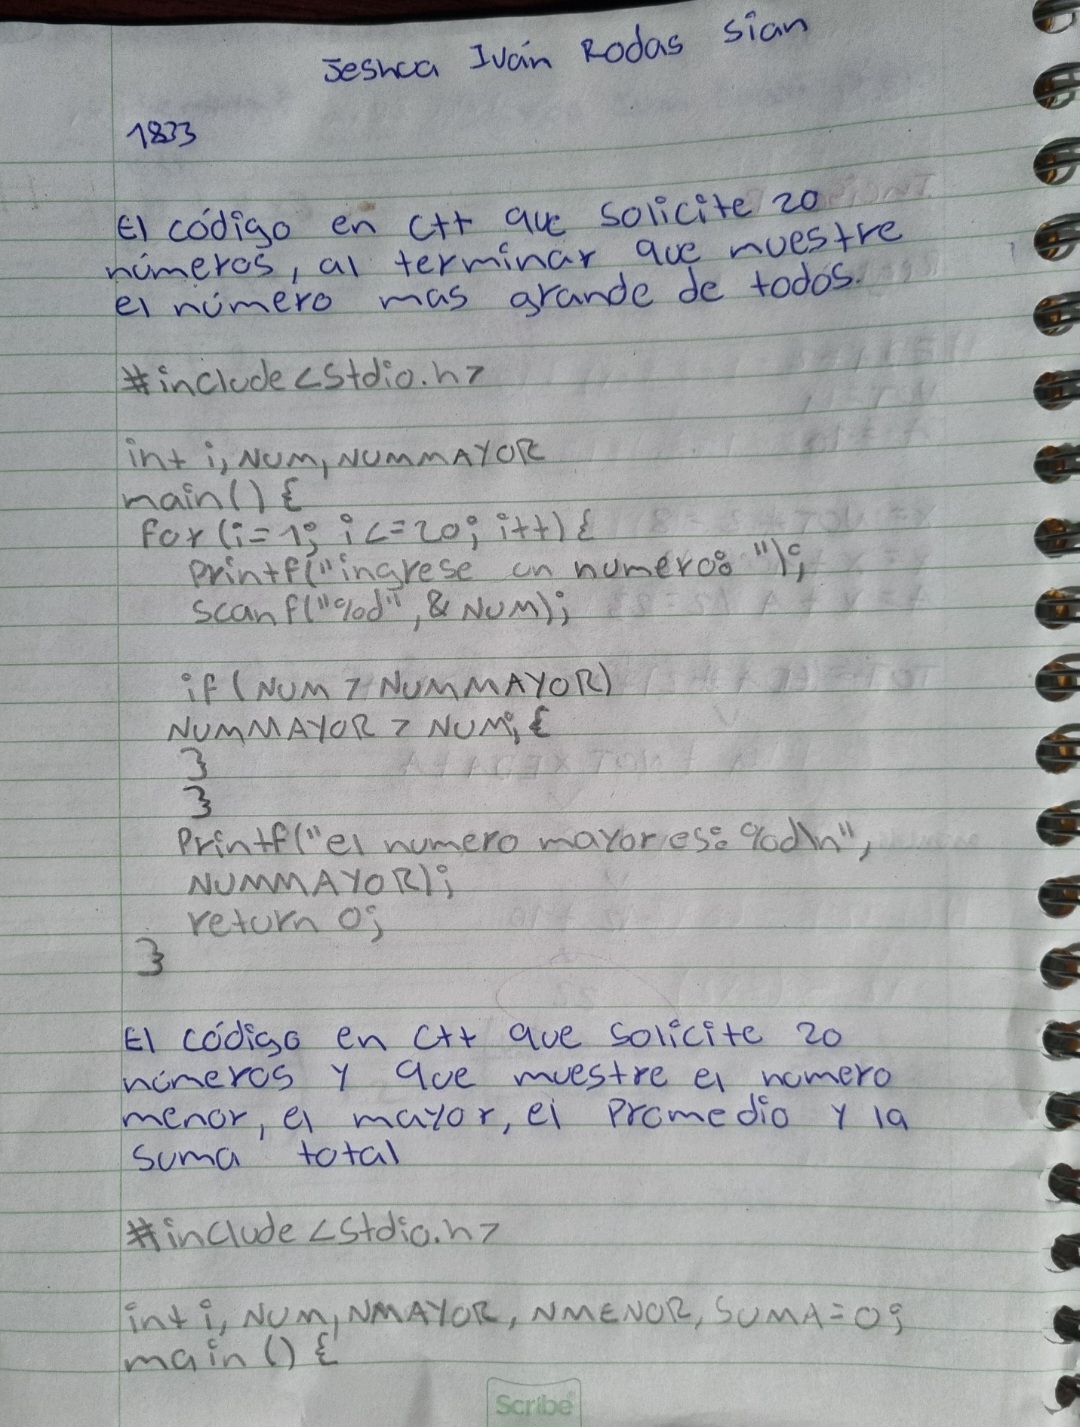 Jeshua Iván Rodas Sian
1833
El código en C++ que solicite 20
números, al terminar que muestre
el número mas grande de todos.
#include <stdio.h>
int i, NUM, NUMMAYOR
main() {
for (i=1; i<=20; i++) {
printf("ingrese un numero: ");
scanf("%d", & NUM);
if (NUM > NUMMAYOR)
NUMMAYOR > NUM; {
}
}
Printf("el numero mayor es: %d\n",
NUMMAYOR);
return 0;
}
El código en C++ que solicite 20
números y que muestre el numero
menor, el mayor, el Promedio y la
suma total
#include <stdio.h>
int i, NUM, NMAYOR, NMENOR, SUMA=0;
main () {
Scribe